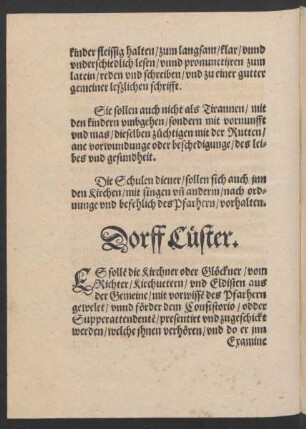 kinder fleissig halten/zum langsam/klar/vnnd
vnderschiedlich lesen/vnnd pronuncttjren zum
latein/reden vnd schreiben/vnd zu einer gutter
gemeiner leßlichen schrifft.
Sie sollen auch nicht als Tirannen/mit
den kindern vmbgehen/sondern mit vornunfft
vnd mas/dieselben züchtigen mit der Rutten/
ane vorwundunge oder beschedigunge/des lei-
bes vnd gesundheit.
Die Schulen diener/sollen sich auch jnn
den Kirchen/mit singen vñ andern/nach ord-
nunge vnd befehlich des Pfarhern/vorhalten.
Dorff Cüster.
ES sollẽ die Kirchner oder Glöckner/vom
Richter/Kirchuetern/vnd Eldisten aus
der Gemeine/mit vorwissẽ des Pfarhern
gewelet/vnnd förder dem Consistorio/odder
Supperattendentẽ/presentirt vnd zugeschickt
werden/welche jhnen verhören/vnd do er jnn
Examine